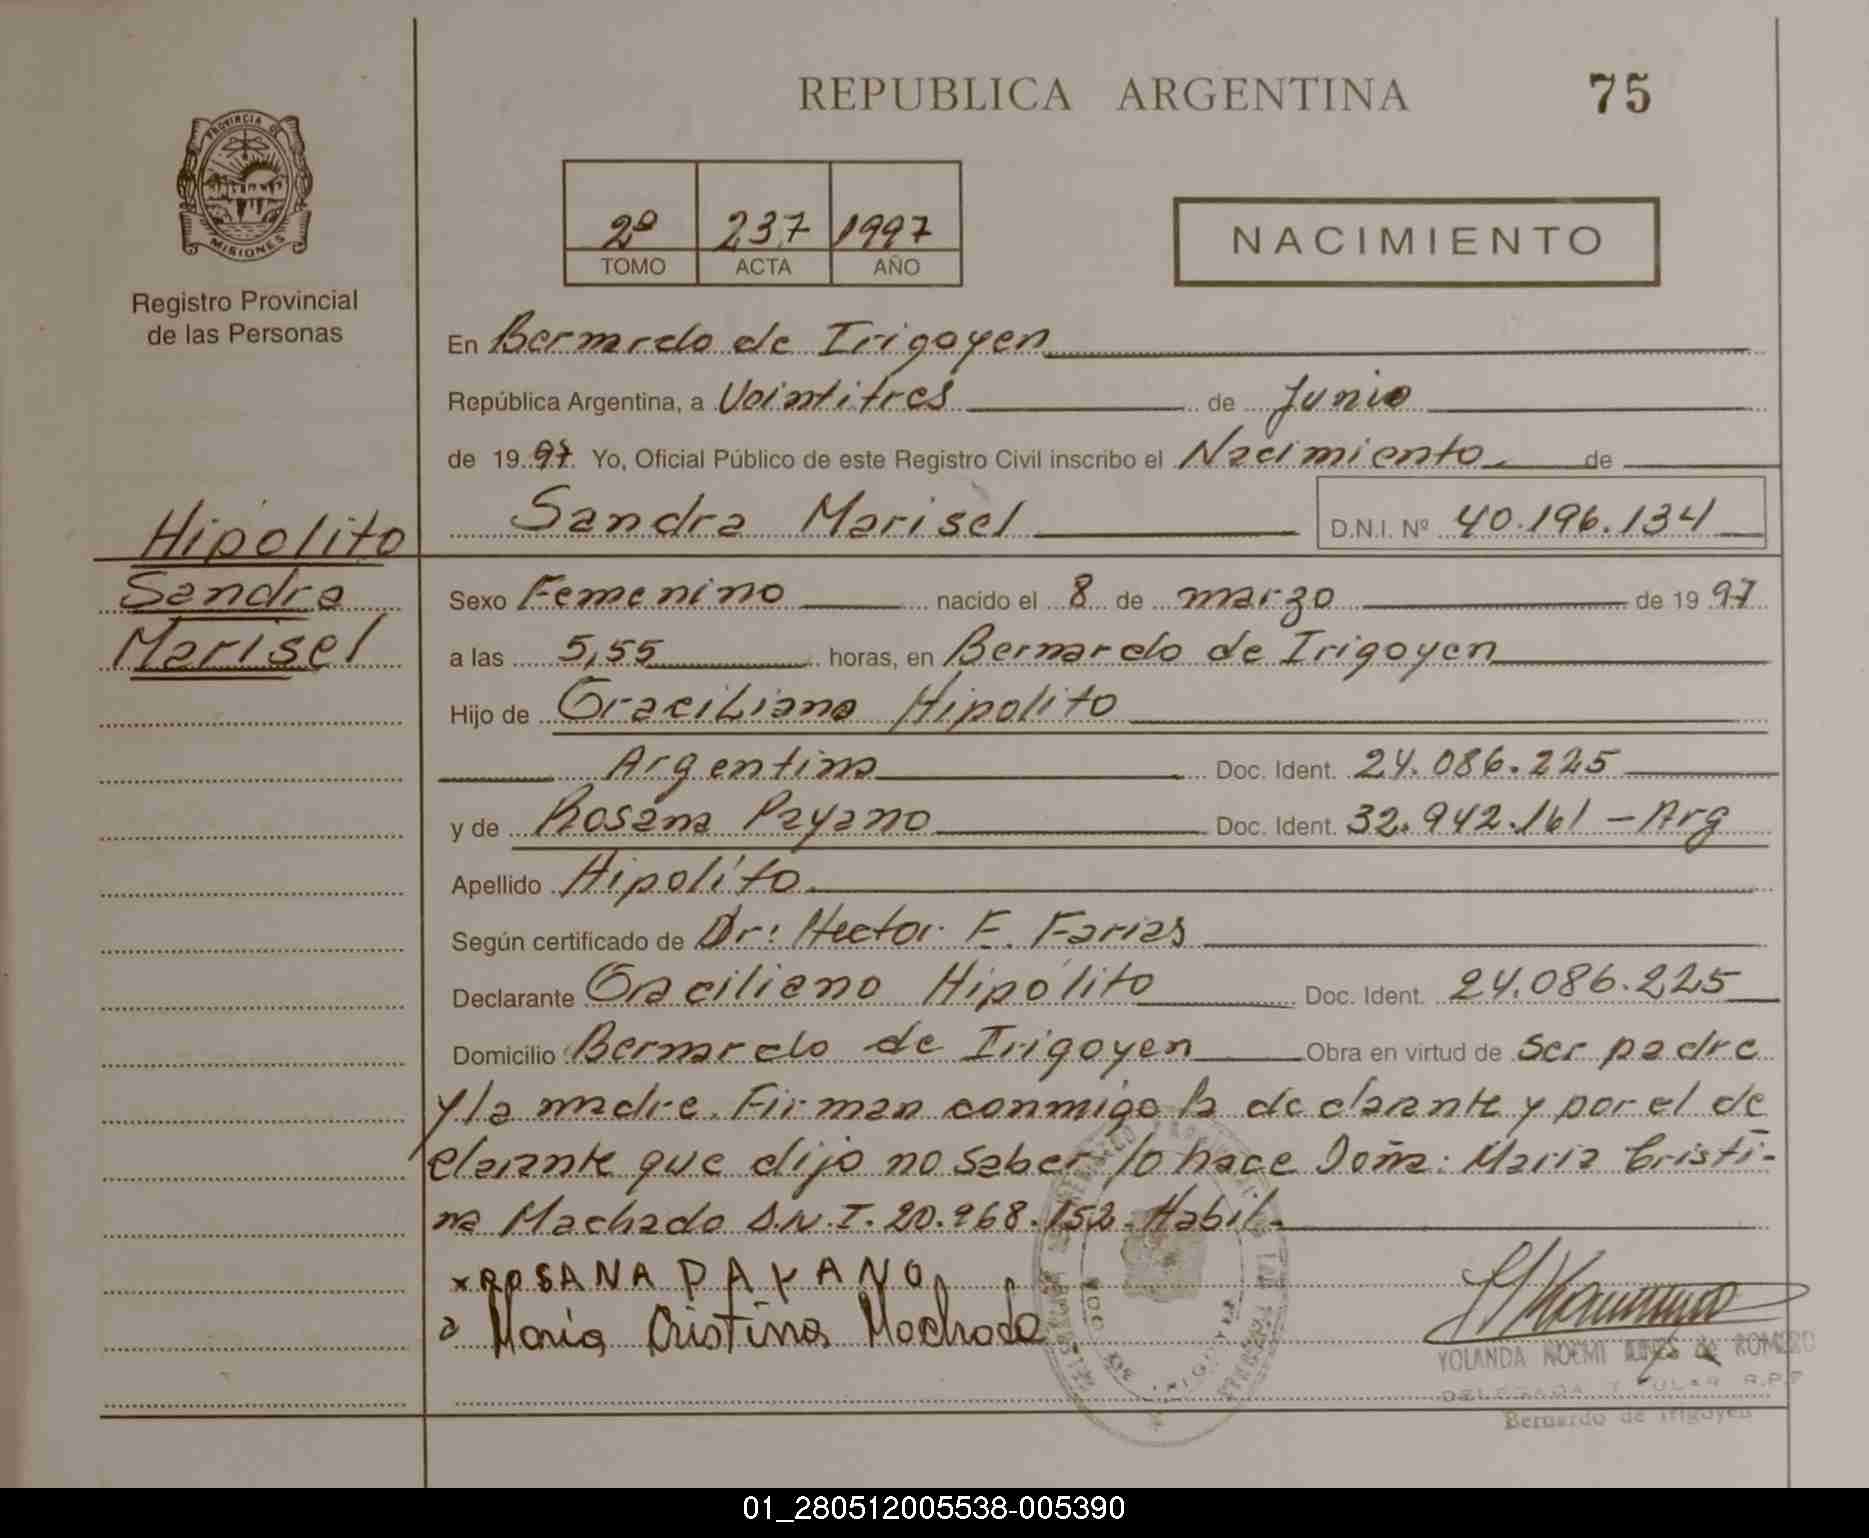 REPUBLICA ARGENTINA
75
PROVINCIA DE
MISIONES
Registro Provincial
de las Personas
2º 237 1997
TOMO ACTA AÑO
NACIMIENTO
En Bernardo de Irigoyen
República Argentina, a Veintitres de Junio
de 1997 Yo, Oficial Público de este Registro Civil inscribo el Nacimiento de
Sandra Marisel D.N.I. Nº 40.196.134
Hipólito
Sandra
Marisel
Sexo Femenino nacido el 8 de marzo de 1997
a las 5,55 horas, en Bernardo de Irigoyen
Hijo de Graciliano Hipolito
Argentino Doc. Ident. 24.086.225
y de Rosana Payano Doc. Ident. 32.942.161 - Arg
Apellido Hipolíto
Según certificado de Dr: Hector F. Farias
Declarante Graciliano Hipólito Doc. Ident. 24.086.225
Domicilio Bernardo de Irigoyen Obra en virtud de ser padre
y la madre. Firman conmigo la declarante y por el de
clarante que dijo no saber lo hace Doña: Maria Cristi-
na Machado D.N.I. 20.968.152. Habil.
x ROSANA PAYANO
a María Cristina Machado
YOLANDA NOEMI de ROMERO
DELEGADA TITULAR R.P.P
Bernardo de Irigoyen
01_280512005538-005390